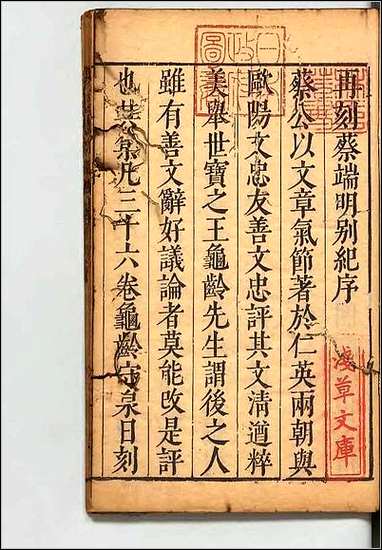 再刻蔡端明別紀序
蔡公以文章氣節著於仁英兩朝與
歐陽文忠友善文忠評其文清遒粹
美舉世寶之王龜齡先生謂後之人
雖有善文辭好議論者莫能改是評
也其集凡三十六卷龜齡守泉日刻
淺草文庫